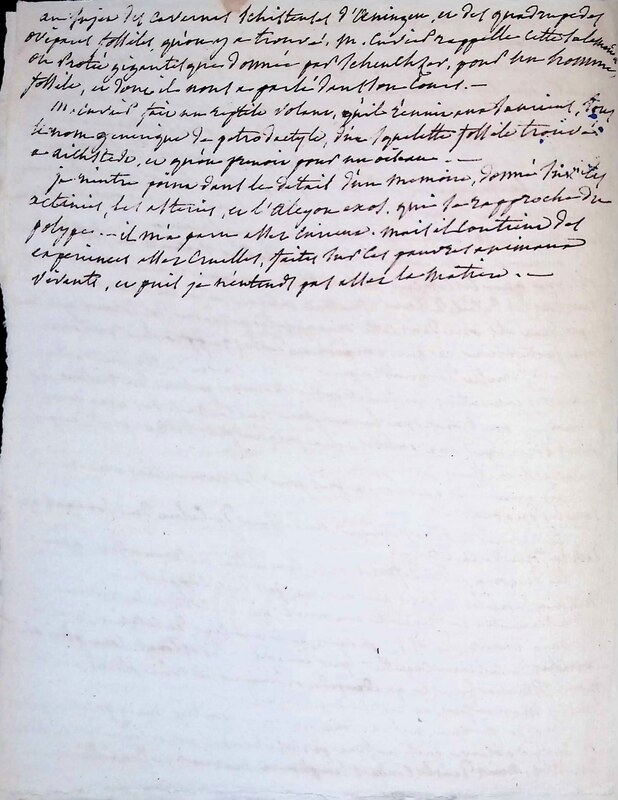 au sujet des cavernes schisteuses d'Oeningen, et des quadrupedes
ovipares fossiles, qu'on y a trouvés, m. Cuvier rappelle cette salamandre
ou Protée gigantesque donnée par Scheuchzer, pour un homme
fossile, et dont il nous a parlé dans son Cours. —
M. Cuvier fait un reptile volant, qu'il réunit aux Sauriens, sous
le nom generique de petrodactyle, d'un squelette fossile trouvé
a aichstedt, et qu'on prenoit pour un oiseau. —
je n'entre point dans le detail d'un memoire, donné sur les
actinies, les asteries, et l'Alcyon exos. qui se rapproche du
polype. — il m'a paru assez curieux. mais il contient des
experiences assez cruelles, faites sur ces pauvres animaux
vivants, et puis je n'entends pas assez la matiere. —